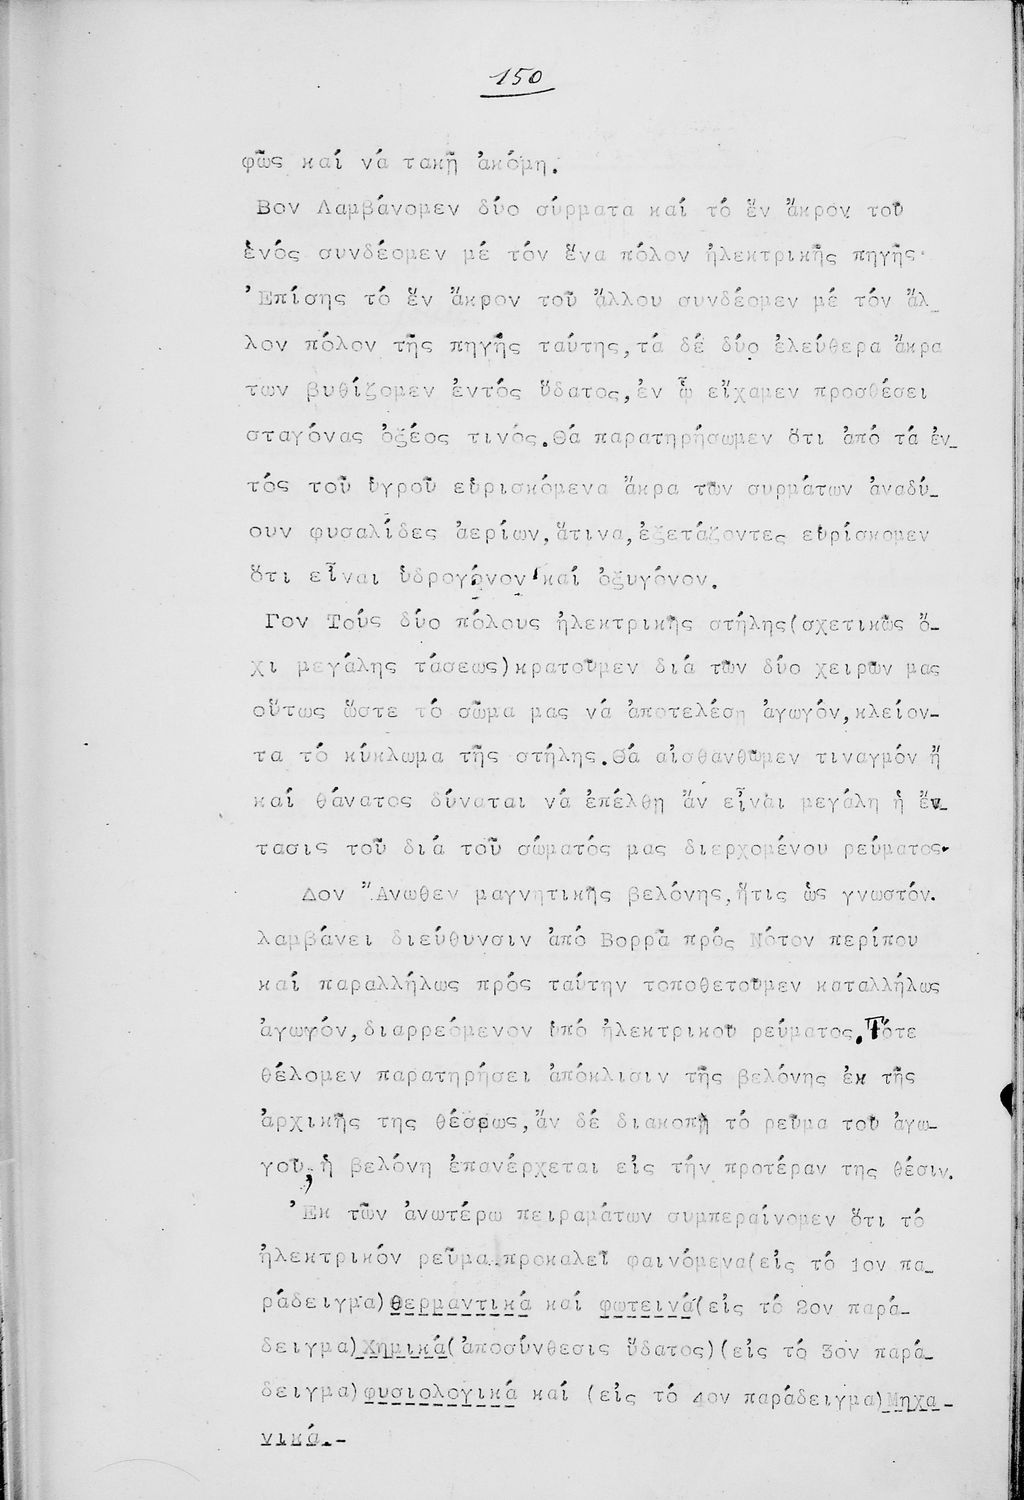 150
φῶς καί νά τακῇ ἀκόμη.
Βον Λαμβάνομεν δύο σύρματα καί τό ἕν ἄκρον τοῦ
ἑνός συνδέομεν μέ τόν ἕνα πόλον ἠλεκτρικῆς πηγῆς·
Ἐπίσης τό ἕν ἄκρον τοῦ ἄλλου συνδέομεν μέ τόν ἄλ_
λον πόλον τῆς πηγῆς ταύτης,τά δέ δύο ἐλεύθερα ἄκρα
των βυθίζομεν ἐντός ὕδατος,ἐν ᾧ εἴχαμεν προσθέσει
σταγόνας ὀξέος τινός.Θά παρατηρήσωμεν ὅτι ἀπό τά ἐν_
τός τοῦ ὑγροῦ εὑρισκόμενα ἄκρα τῶν συρμάτων ἀναδύ_
ουν φυσαλίδες ἀερίων,ἅτινα,ἐξετάζοντες εὑρίσκομεν
ὅτι εἶναι ὑδρογόνον καί ὀξυγόνον.
Γον Τούς δύο πόλους ἠλεκτρικῆς στήλης(σχετικῶς ὄ-
χι μεγάλης τάσεως)κρατοῦμεν διά τῶν δύο χειρῶν μας
οὕτως ὥστε τό σῶμα μας νά ἀποτελέσῃ ἀγωγόν,κλείον-
τα τό κύκλωμα τῆς στήλης.Θά αἰσθανθῶμεν τιναγμόν ἤ
καί θάνατος δύναται νά ἐπέλθῃ ἄν εἶναι μεγάλη ἡ ἔν_
τασις τοῦ διά τοῦ σώματός μας διερχομένου ρεύματος.
Δον Ἄνωθεν μαγνητικῆς βελόνης,ἥτις ὡς γνωστόν.
λαμβάνει διεύθυνσιν ἀπό Βορρᾶ πρός Νότον περίπου
καί παραλλήλως πρός ταύτην τοποθετοῦμεν καταλλήλως
ἀγωγόν,διαρρεόμενον ὑπό ἠλεκτρικοῦ ρεύματος.Τότε
θέλομεν παρατηρήσει ἀπόκλισιν τῆς βελόνης ἐκ τῆς
ἀρχικῆς της θέσεως,ἄν δέ διακοπῇ τό ρεῦμα τοῦ ἀγω-
γοῦ,ἡ βελόνη ἐπανέρχεται εἰς τήν προτέραν της θέσιν.
Ἐκ τῶν ἀνωτέρω πειραμάτων συμπεραίνομεν ὅτι τό
ἠλεκτρικόν ρεῦμα..προκαλεῖ φαινόμενα(εἰς τό 1ον πα_
ράδειγμα)θερμαντικά καί φωτεινά(εἰς τό 2ον παρά-
δειγμα)Χημικά(ἀποσύνθεσις ὕδατος)(εἰς τό 3ον παρά_
δειγμα)φυσιολογικά καί (εἰς τό 4ον παράδειγμα)Μηχα-
νικά.-